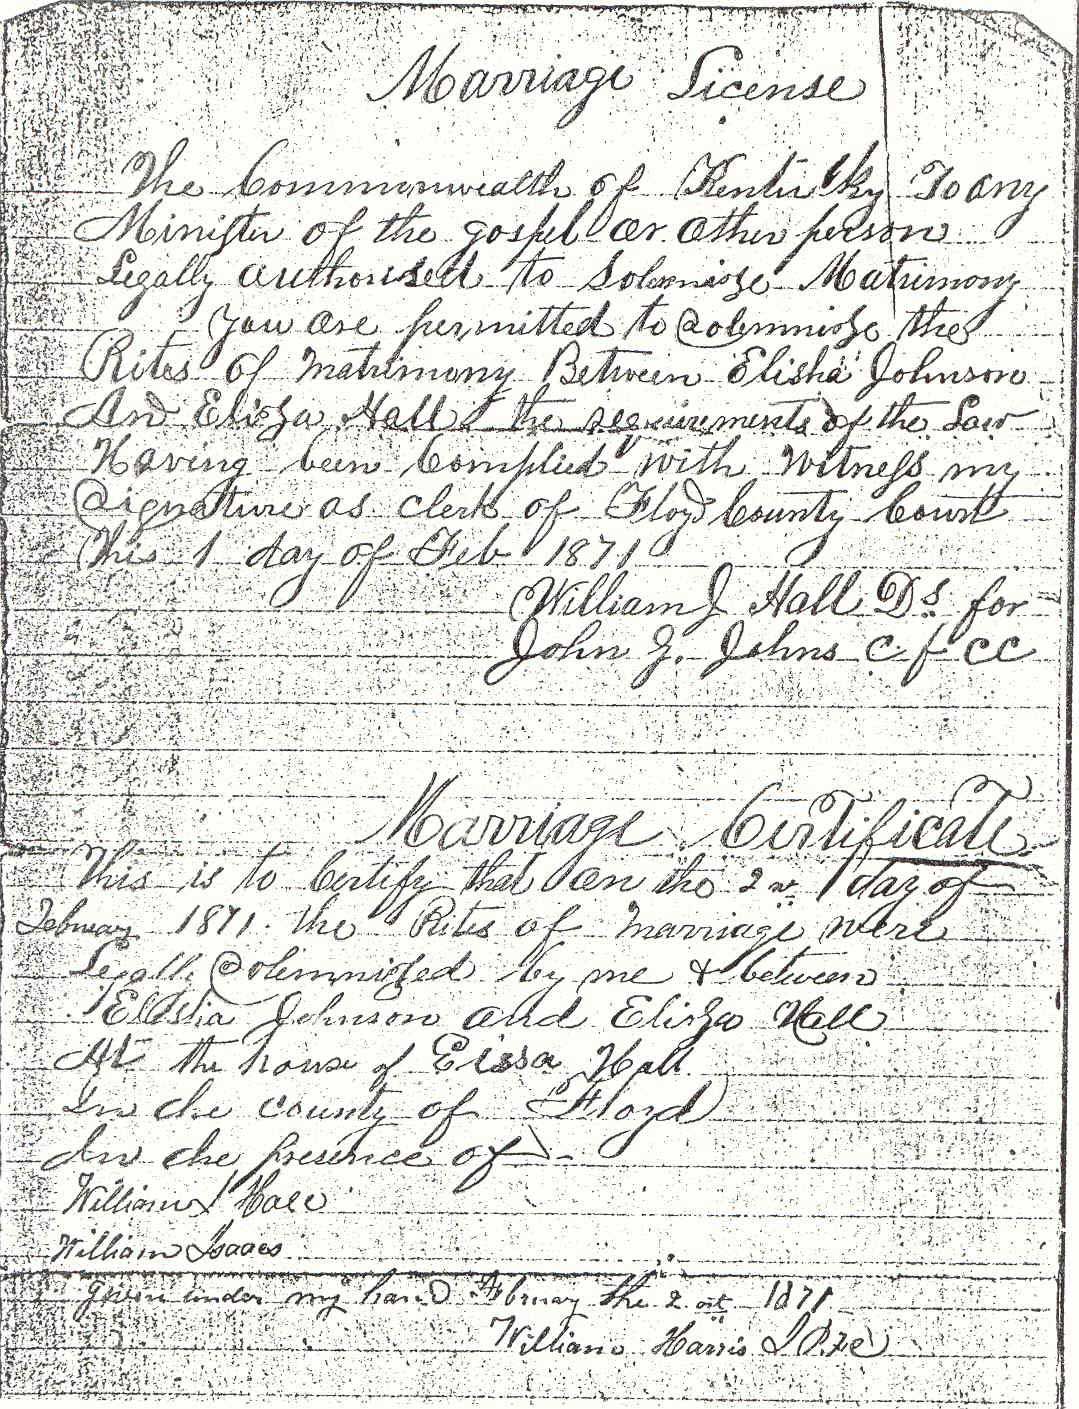 Marriage License
The Commonwealth of Kentucky To any
Minister of the gospel or other person
Legally authorised to Solemnize Matrimony
You are permitted to Solemnize the
Rites of Matrimony Between Elisha Johnson
And Eliza Hall the requirements of the Law
Having been Complied with Witness my
Signature as clerk of Floyd County Court
This 1 day of Feb 1871
William J Hall Ds for
John Z. Johns C f CC
Marriage Certificate
This is to Certify that on the 2 day of
February 1871. the Rites of Marriage were
Legally Solemnized by me & between
Elisha Johnson and Eliza Hall
At the house of Hall
In the county of Floyd
In the presence of
William J Hall
William Isaacs
Given under my hand February the 2 1871
William Harris